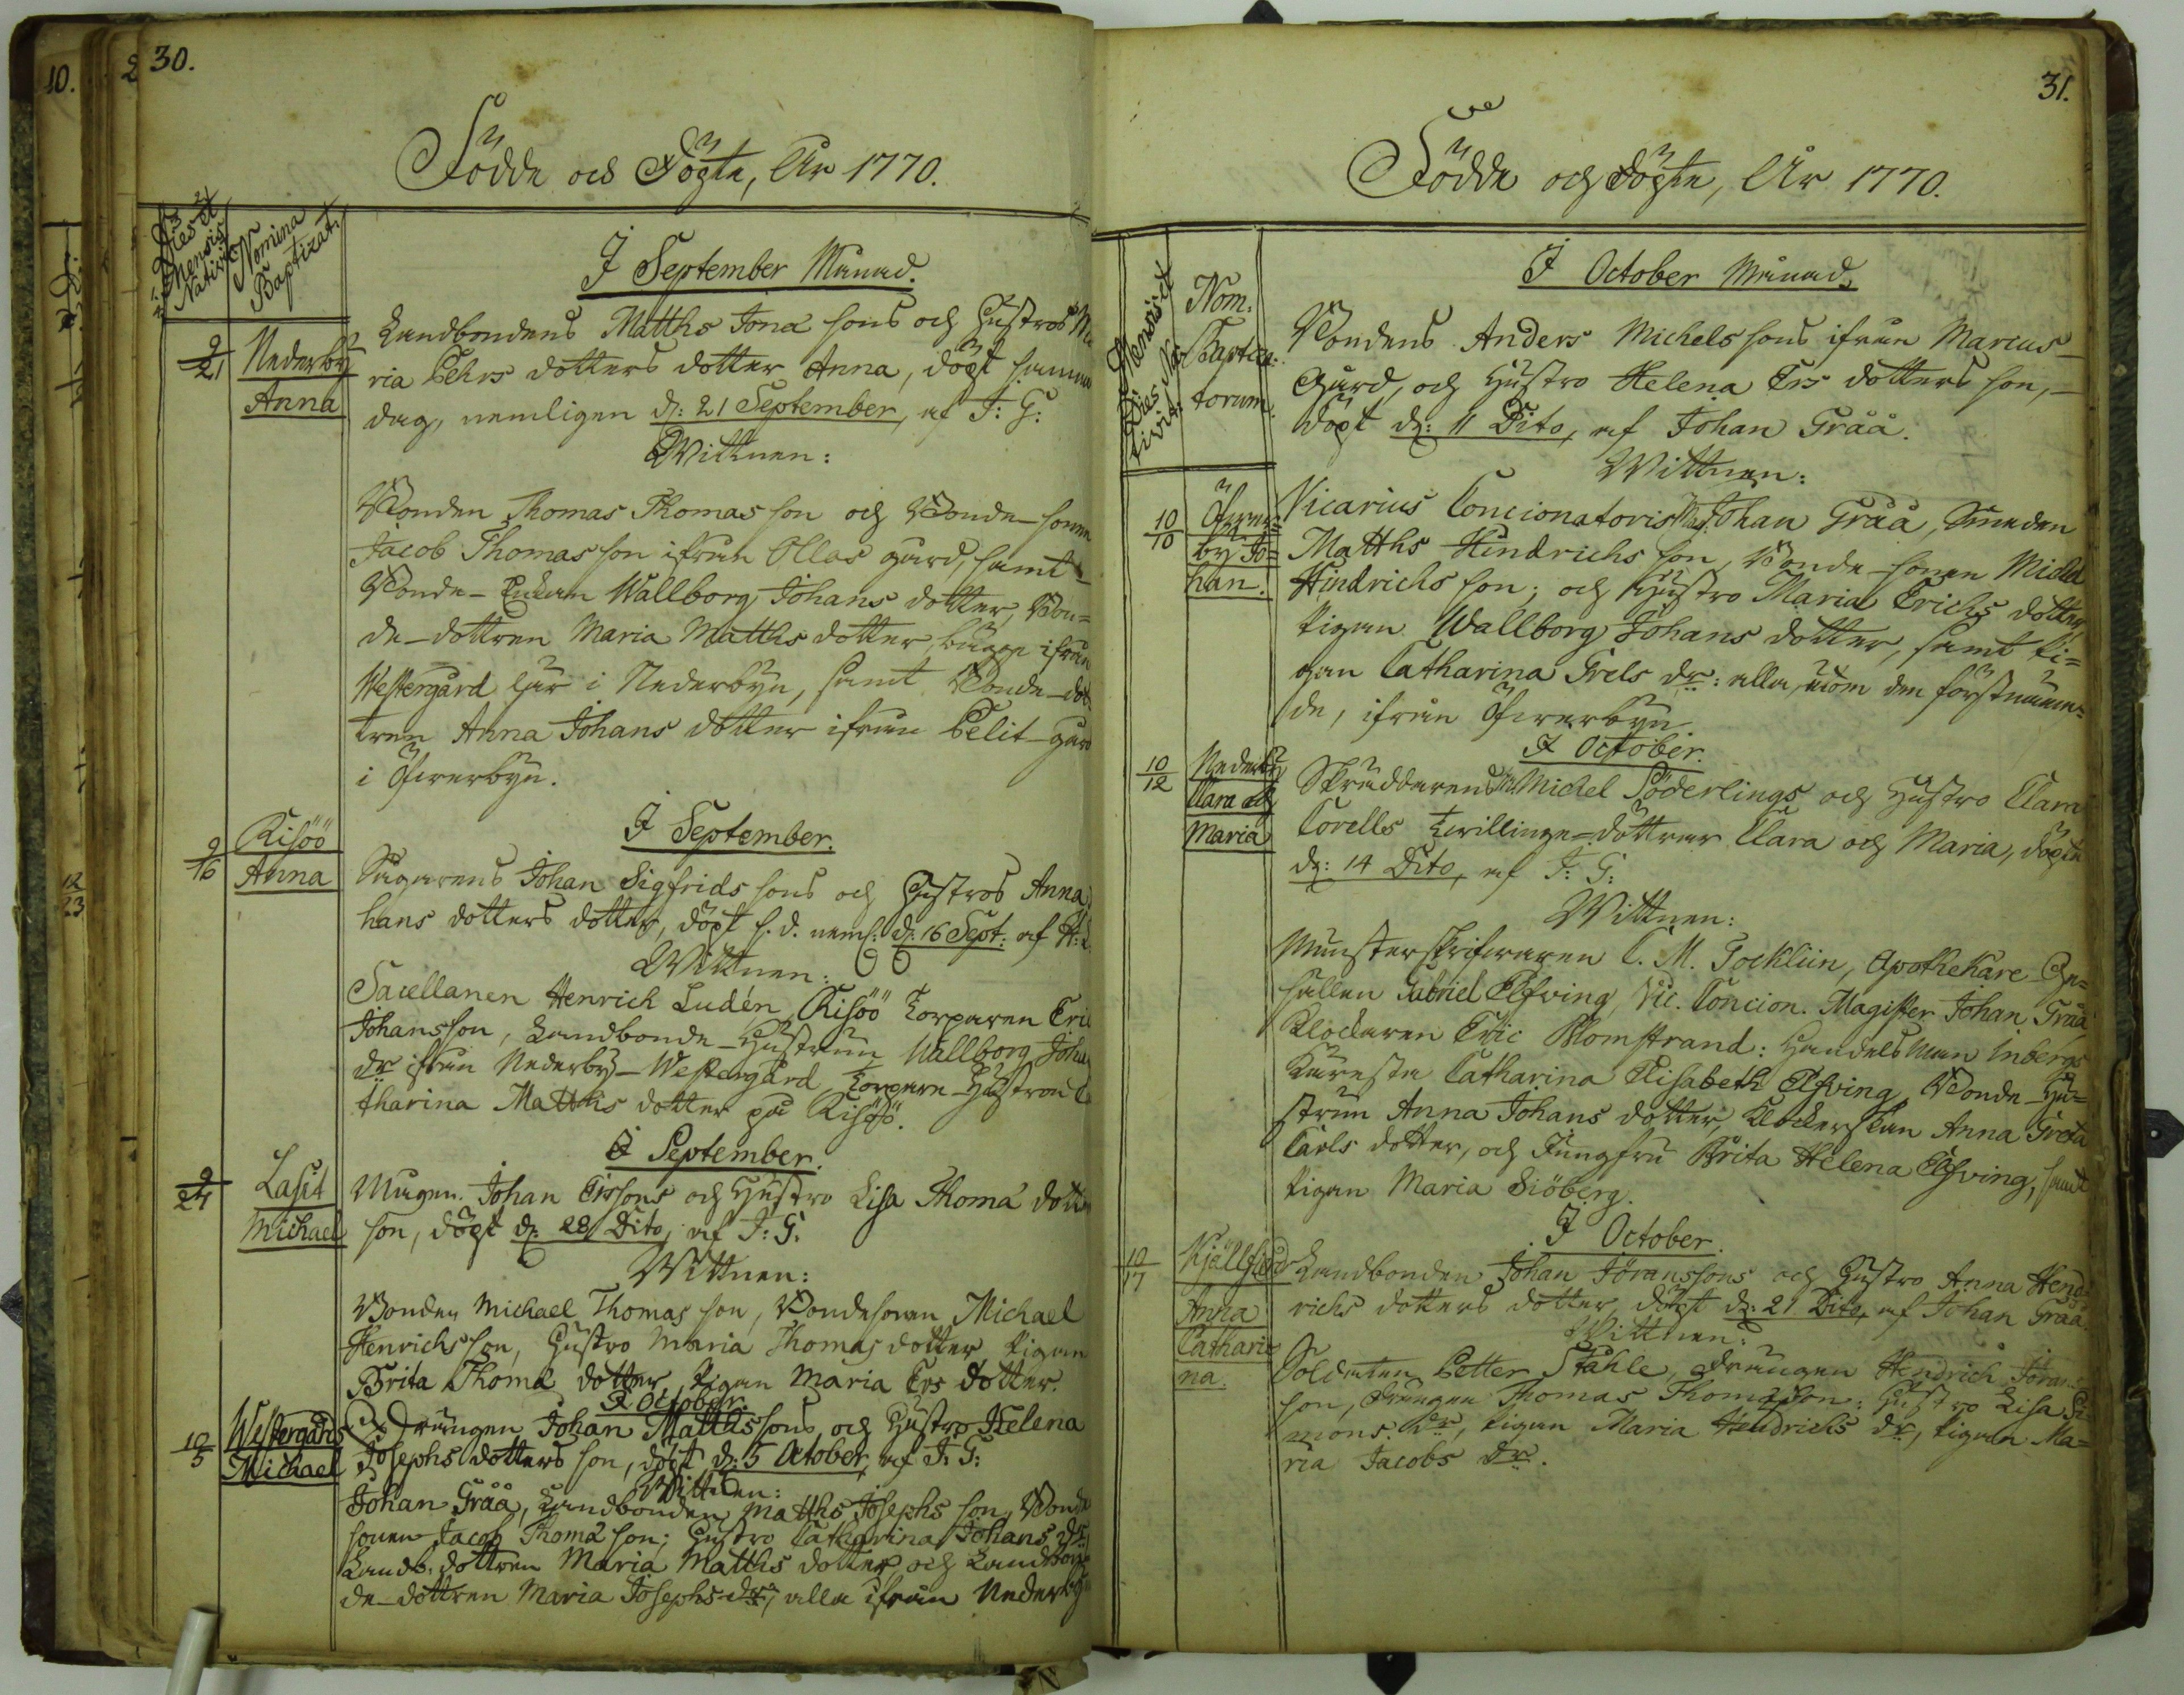 30.
Födde och Döpte, År 1770.
Dies et
Mensis
Nativit.
Nomina
Baptizat.
I September Månad.
9/21
Nederby
Anna
Landbondens Matths Jonæ sons och Hustros Ma
ria Pehrs dotters dotter Anna, döpt samma
dag, nemligen d: 21 September, af J: G:
Wittnen:
Bonden Thomas Thomas son och Bonde-sonen
Jacob Thomas son ifrån Ollas gård, samt
Bonde- Enkan Wallborg Johans dotter, Bon=
de-dottren Maria Matths dotter, bägge ifrån
Westergård här i Nederbyn, samt Bonde-dot
tren Anna Johans dotter ifrån Pelit-gård
i Öfwerbyn.
I September.
9/16
Risöö
Anna
Sågarens Johan Sigfrids sons och Hustros Anna
hans dotters dotter, döpt s. d. neml: d: 16 Sept: af H: L
Wittnen:
Sacellanen Henrich Ludén, Risöö Torparen Eric
Johansson, Landbonde-Hustrun Wallborg Joha
dr ifrån Nederby-Westergård, Torpare-Hustron Ca
tharina Matths dotter på Risöö.
I September.
9/24
Lasit
Michael
Mågen Johan Erssons och Hustro Lisa Thomæ dott
son, döpt d: 28 Dito, af J: G:
Wittnen:
Bonden Michael Thomas son, Bondesonen Michael
Henrichs son, Hustro Maria Thomas dotter Pigan
Brita Thomæ dotter, Pigan Maria Ers dotter.
I October.
10/5
Westergårds
Michael
Drängen Johan Matths sons och Hustro Helena
Josephs dotters son, döpt d: 5 October, af J: G:
Wittnen:
Johan Gråå, Landbonden Matths Josephs son, Bonde
sonen Jacob Thomæ son; Hustro Catharina Johans dr
Landb: dottren Maria Matths dotter, och Landbon
de-dottren Maria Josephs dr, alla ifrån Nederby
31.
Födde och Döpte, År 1770.
Mensis et
Dies Na
tivit.
Nom.
Baptiza=
torum.
I October Månad.
Bondens Anders Michels sons ifrån Marcus-
Gård, och Hustro Helena Ers dotters son,
döpt d: 11 Dito, af Johan Gråå.
Wittnen:
10/10
Öfwer=
by Jo=
han.
Vicarius Concionatoris Mag. Johan Gråå, Smeden
Matths Hindrichs son, Bonde-sonen Michel
Hindrichs son; och Hustro Maria Erichs dotter,
Pigan Wallborg Johans dotter, samt Pi=
gan Catharina Grels dr: alla, utom den förstnämn=
de, ifrån Öfwerbyn.
I October.
10/12
Nederby
Clara och
Maria
Skräddarens Michel Söderlings och Hustro Clara
Corells Twillinge-döttrar Clara och Maria, döpte
d: 14 Dito, af J: G:
Wittnen:
Munsterskrifwaren C. M. Tocklin, Apothekare Ge=
sällen Gabriel Elfving, Vic. Concion. Magister Johan Gråå
Klockaren Eric Blomstrand: Handelsman Inbergs
Käresta Catharina Elisabeth Elfving, Bonde-Hu=
strun Anna Johans dotter, Klockerskan Anna Greta
Carls dotter, och Jungfru Brita Helena Elfving, samt
Pigan Maria Siöberg.
I October.
10/17
Kjällfjerd
Anna
Cathari=
na.
Landbonden Johan Jöranssons och Hustro Anna Hend
richs dotters dotter, döpt d: 21 Dito, af Johan Gråå.
Wittnen:
Soldaten Petter Ståhle, Drängen Hendrich Jörans
son, Drängen Thomas Thomæson: Hustro Lisa Si=
mons dr, Pigan Maria Hendrichs dr, Pigan Ma=
ria Jacobs dr.